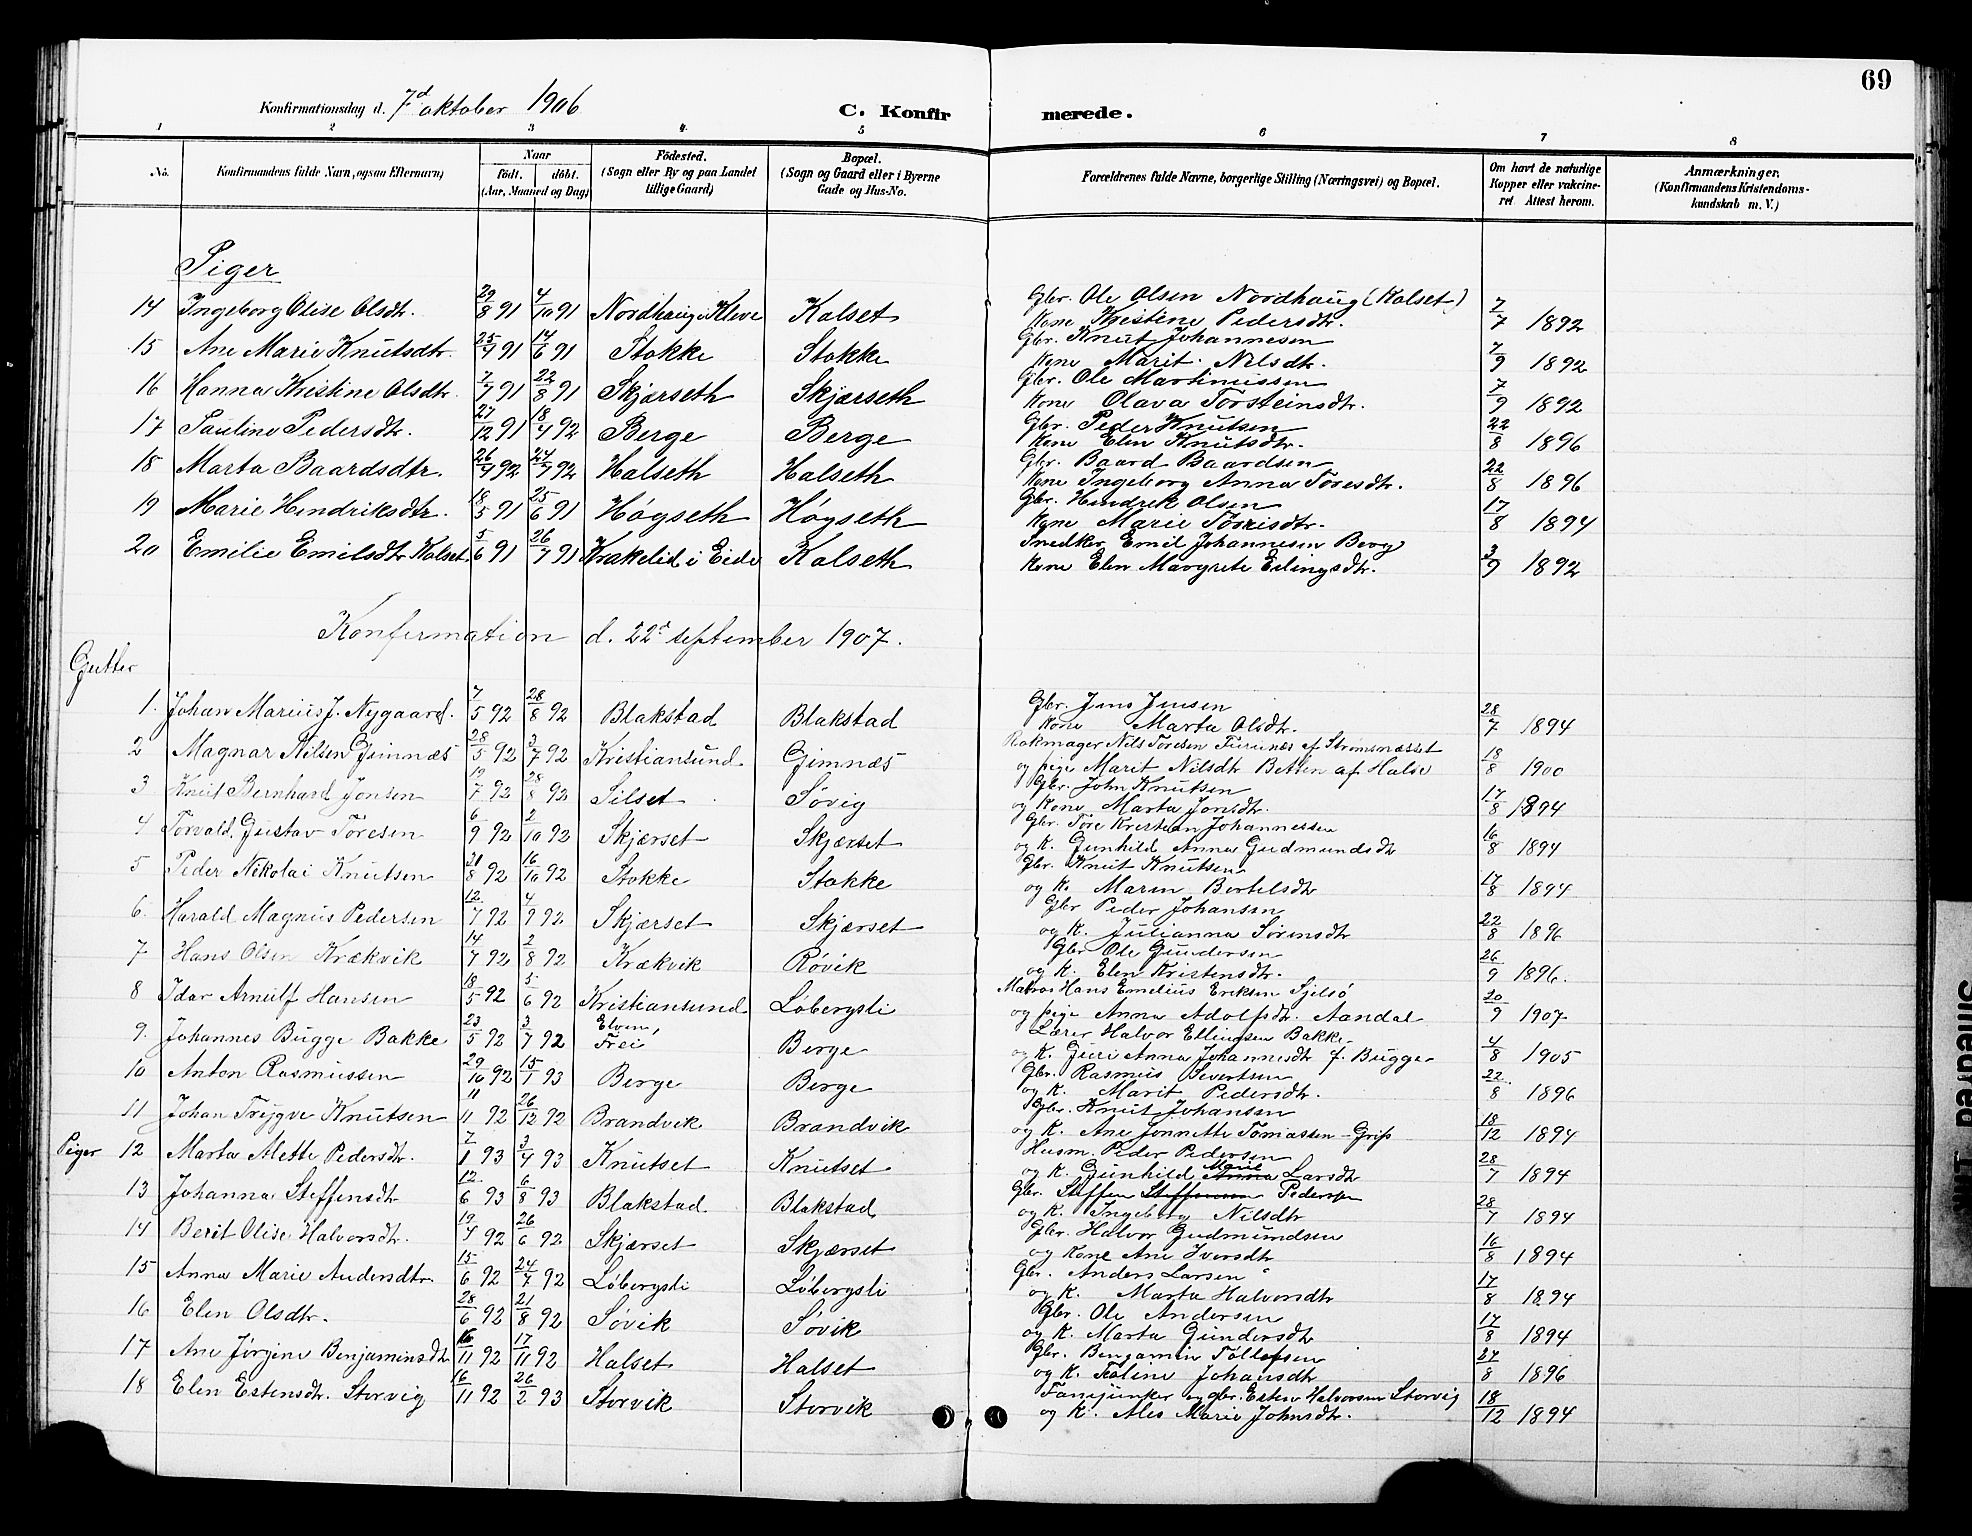 69
Konfirmationsdag d. 7d oktober 1906
C. Konfir merede.
1 2 3 4. 5 6 7 8
No. Konfirmandens fulde Navn, ogsaa Efternavn) Naar født. døbt. (Aar, Maaned og Dag) Fødested. (Sogn eller By og paa Landet tillige Gaard) Bopæl. (Sogn og Gaard eller i Byerne Gade og Hus-No. Forældrenes fulde Navne, borgerlige Stilling (Næringsvei) og Bopæl. Om havt de naturlige Kopper eller vakcineret Attest herom. Anmærkninger. (Konfirmandens Kristendomskundskab m. V.)
Piger
14 Ingeborg Olise Olsdtr. 29/8 91 4/10 91 Nordhaug i Kleve Kalset Gbr. Ole Olsen Nordhaug (Kalset) Kone Kristine Pedersdtr. 7/7 1892
15 Ane Marie Knutsdtr. 25/4 91 14/6 91 Stokke Stokke Gbr. Knut Johannesen Kone Marit Nilsdt. 7/9 1892
16 Hanna Kristine Olsdtr. 7/7 91 22/8 91 Skjærseth Skjærseth Gbr. Ole Martinussen Kone Olava Torsteinsdtr. 7/9 1892
17 Pauline Pedersdtr. 27/12 91 18/4 92 Berge Berge Gbr. Peder Knutsen Kone Elen Knutsdtr. 22/8 1896
18 Marta Baardsdtr. 26/4 92 24/7 92 Halseth Halseth Gbr. Baard Baardsen Kone Ingeborg Anna Toresdtr. 22/8 1896
19 Marie Hendriksdtr. 18/5 91 25/6 91 Høgseth Høgseth Gbr. Hendrik Olsen Kone Marie Torrisdtr. 17/8 1894
20 Emilie Emilsdtr Kalset. 5/6 91 26/7 91 Krakelid i Eide Kalseth Snedker Emil Johannesen Berg Kone Elen Margrete Erlingsdtr. 3/9 1892
Konfirmation d. 22d september 1907.
Gutter
1. Johan Marius J. Nygaard. 7/5 92 28/8 92 Blakstad Blakstad Gbr. Jens Jensen Kone Marta Olsdtr. 28/7 1894
2 Magnar Nilsen Gimnæs 28/5 92 3/7 92 Kristiansund Gimnæs Rokmager Nils Toresen Furunæs af Strømsnæsset og pige Marit Nilsdtr Betten af Halse 18/8 1900
3 Knut Bernhard Jonsen 19/7 92 28/8 92 Silset Søvig Gbr. John Knutsen og Kone Marta Jonsdtr. 17/8 1894
4 Torvald Gustav Toresen 6/9 92 2/10 92 Skjærset Skjærset Gbr. Tore Kristian Johannessen og K. Gunhild Anna Gudmundsdt 16/8 1894
5 Peder Nikolai Knutsen 21/8 92 16/10 92 Stokke Stokke Gbr. Knut Knutsen og K. Maren Bertelsdtr 17/8 1894
6. Harald Magnus Pedersen 12/7 92 4/9 92 Skjærset Skjærset Gbr Peder Johansen og K. Julianna Sørensdtr 22/8 1896
7 Hans Olsen Krækvik 14/7 92 2/8 92 Krækvik Røvik Gbr Ole Gundersen og K. Elen Kristensdtr. 26/9 1896.
8 Idar Arnulf Hansen 18/5 92 5/6 92 Kristiansund Løbergsli Matros Hans Emelius Eriksen Sjelsø og pige Anna Adolfsdtr. Aandal 20/9 1907
9. Johannes Bugge Bakke 23/5 92 3/7 92 Elven, Frei Berge Lærer Halvor Ellingsen Bakke og K. Guri Anna Johannesdtr f. Bugge 4/8 1905
10 Anton Rasmussen 29/10 92 15/1 93 Berge Berge Gbr. Rasmus Severtsen og K. Marit Pedersdtr. 22/8 1896
11 Johan Trygve Knutsen 11/11 92 26/12 92 Brandvik Brandvik Gbr. Knut Johansen og K. Ane Jonnette Tomassen - Grip 18/12 1894
Piger 12 Marta Alette Pedersdtr. 7/1 93 3/4 93 Knutset Knutset Husm. Peder Pedersen og K. Gunhild Marie Larsdtr 28/7 1894
13 Johanna Steffensdtr 12/6 93 6/8 93 Blakstad Blakstad Gbr. Steffen Steffensen Pedersen og K. Ingeborg Nilsdtr 28/7 1894
14 Berit Olise Halvorsdtr. 19/4 92 26/6 92 Skjærset Skjærset Gbr. Halvor Gudmundsen og Kone Ane Iversdtr 16/8 1894
15 Anna Marie Andersdtr. 15/6 92 24/7 92 Løbergsli Løbergsli Gbr. Anders Larsen og K. Marta Halvorsdtr 17/8 1894
16 Elen Olsdtr. 28/6 92 21/8 92 Søvik Søvik Gbr. Ole Andersen og K. Marta Gundersdtr 17/8 1894
17 Ane Jørgine Benjaminsdtr 16/11 92 17/11 92 Halset Halset Gbr. Benjamin Tollefsen og K. Joline Johansdtr 27/8 1896
18 Elen Estensdtr. Storvig 16/11 92 26/2 93 Storvik Storvik Fanejunker og gbr. Esten Halvorsen Storvig og K. Ales Marie Johnsdtr. 18/12 1894